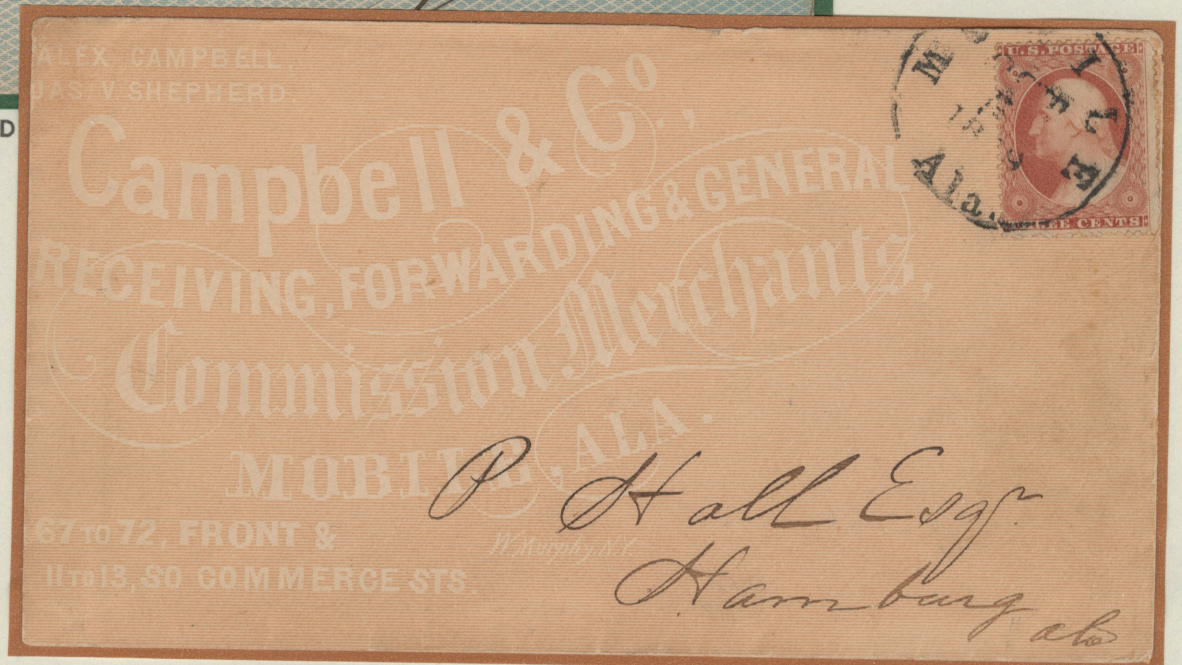 ALEX CAMPBELL.
JAS. V. SHEPHERD.
Campbell & Co,
RECEIVING, FORWARDING & GENERAL
Commission Merchants,
MOBILE, ALA.
67 TO 72, FRONT &
11 TO 13, SO COMMERCE STS.
W. Murphy, N.Y.
U.S. POSTAGE
EE CENTS
MOBILE
Ala
P Hall Esqr.
Hamburg
Ala
D